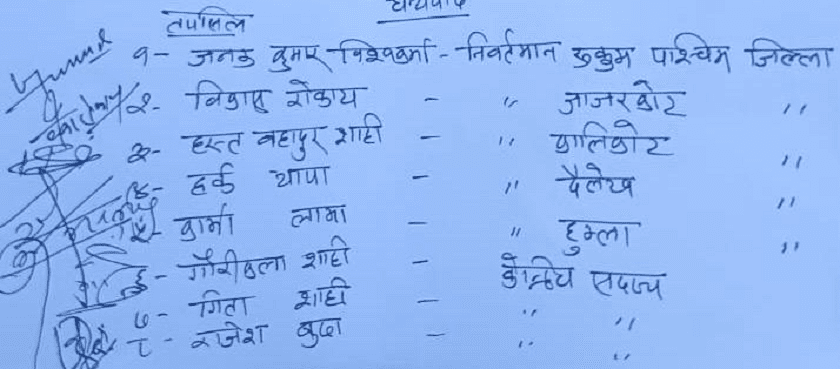 धन्यवाद
तपसिल
१- जनक कुमार विश्वकर्मा - निवर्तमान रुकुम पश्चिम जिल्ला
२- विकास रोकाय - " जाजरकोट "
३- हस्त बहादुर शाही - " कालिकोट "
४- हर्क थापा - " दैलेख "
५- कार्मा लामा - " हुम्ला "
६- गौरीकला शाही - केन्द्रिय सदस्य
७- गिता शाही - " "
८- राजेश बुढा - " "